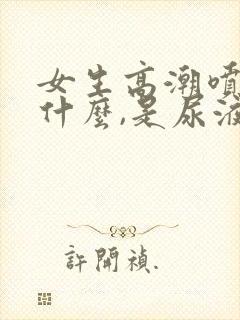 女生高潮噴
什麼,是尿液
許開禎.